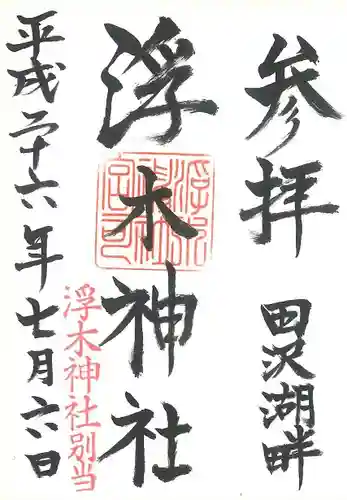 参拝 田沢湖畔
浮木神社
浮木神社別当
平成二十六年七月六日